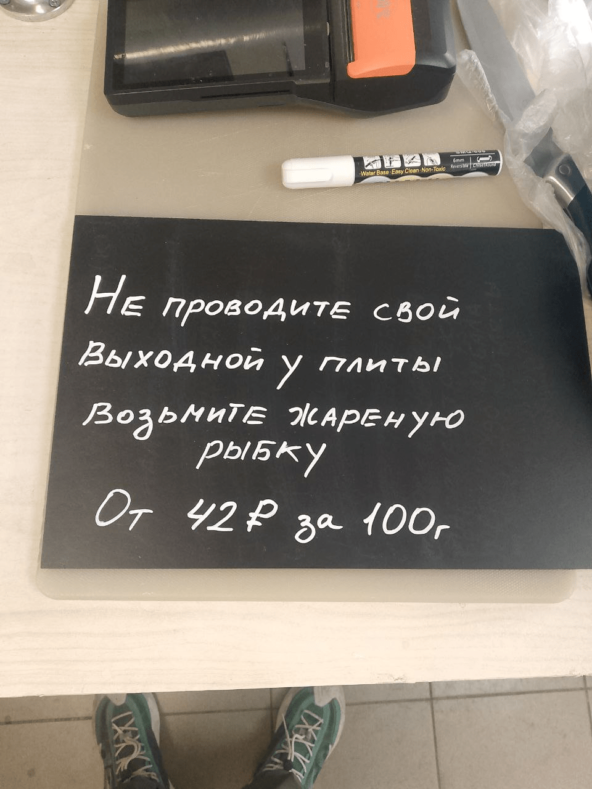 Water Base Easy Clean Non-Toxic
Не проводите свой
выходной у плиты
Возьмите жареную
рыбку
От 42₽ за 100г